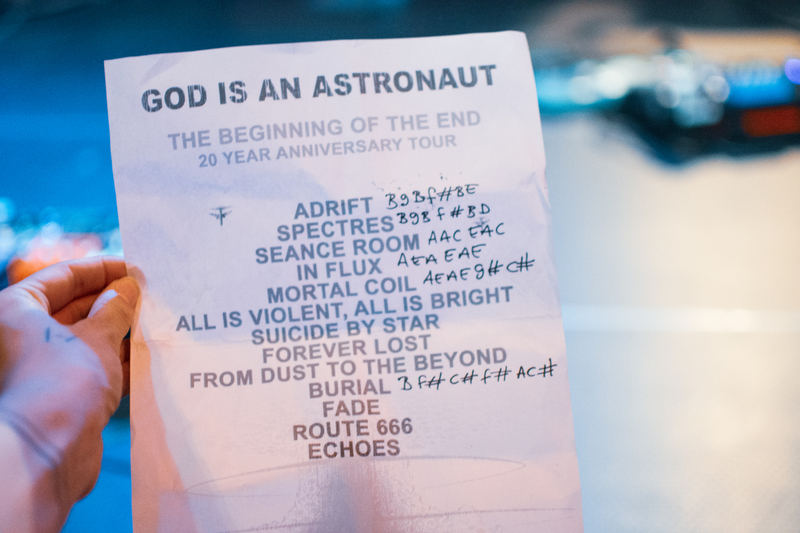 GOD IS AN ASTRONAUT
THE BEGINNING OF THE END
20 YEAR ANNIVERSARY TOUR
ADRIFT B9Bf#BE
SPECTRES B9Bf#BD
SEANCE ROOM AACEAC
IN FLUX AEAEAE
MORTAL COIL AEAE9#C#
ALL IS VIOLENT, ALL IS BRIGHT
SUICIDE BY STAR
FOREVER LOST
FROM DUST TO THE BEYOND
BURIAL Bf#C#f#AC#
FADE
ROUTE 666
ECHOES